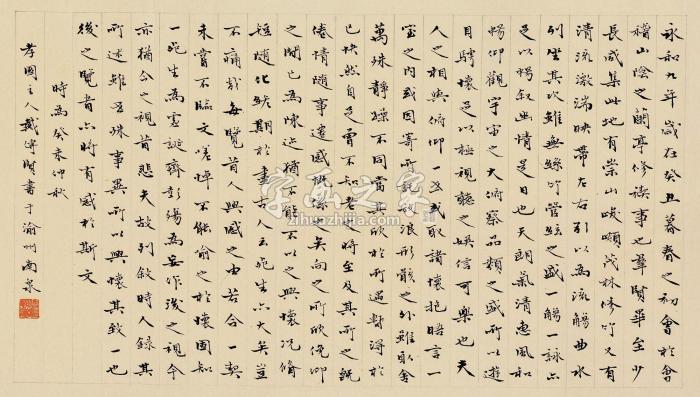 永和九年歲在癸丑暮春之初會於會
稽山陰之蘭亭修禊事也羣賢畢至少
長咸集此地有崇山峻嶺茂林修竹又有
清流激湍映帶左右引以為流觴曲水
列坐其次雖無絲竹管絃之盛觴一詠亦
足以暢敘幽情是日也天朗氣清惠風和
暢仰觀宇宙之大俯察品類之盛所以遊
目騁懷足以極視聽之娛信可樂也夫
人之相與俯仰一世或取諸懷抱晤言一
室之內或因寄所託放浪形骸之外雖取舍
萬殊靜躁不同當其欣於所遇暫得於
己快然自足曾不知老之將至及其所之既
倦情隨事遷感慨係之矣向之所欣俛仰
之間已為陳迹猶不能不以之興懷況脩
短隨化終期於盡古人云死生亦大矣豈
不痛哉每覽昔人興感之由若合一契
未嘗不臨文嗟悼不能喻之於懷固知
一死生為虛誕齊彭殤為妄作後之視今
亦猶今之視昔悲夫故列敘時人錄其
所述雖世殊事異所以興懷其致一也
後之覽者亦將有感於斯文
時為癸未仲秋
孝園主人戴傳賢書于渝州南泉
字画之家
zihuazhijia.com